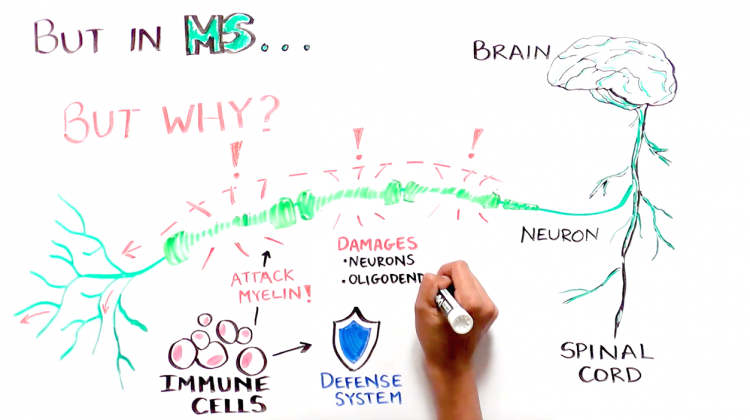 BUT IN MS...
BRAIN
BUT WHY?
! ! !
NEURON
DAMAGES
• NEURONS
• OLIGODEND
ATTACK
MYELIN!
IMMUNE
CELLS
DEFENSE
SYSTEM
SPINAL
CORD